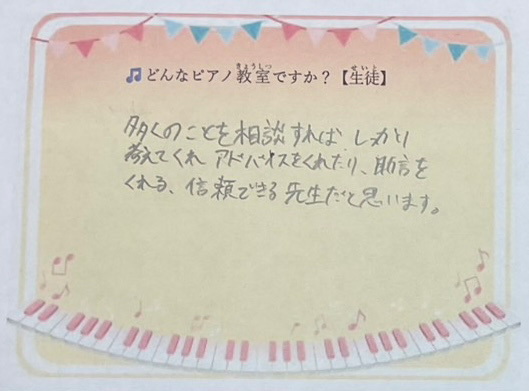 どんなピアノ教室ですか？【生徒】
多くのことを相談すれば しっかり
考えてくれ アドバイスをくれたり、助言を
くれる、信頼できる先生だと思います。